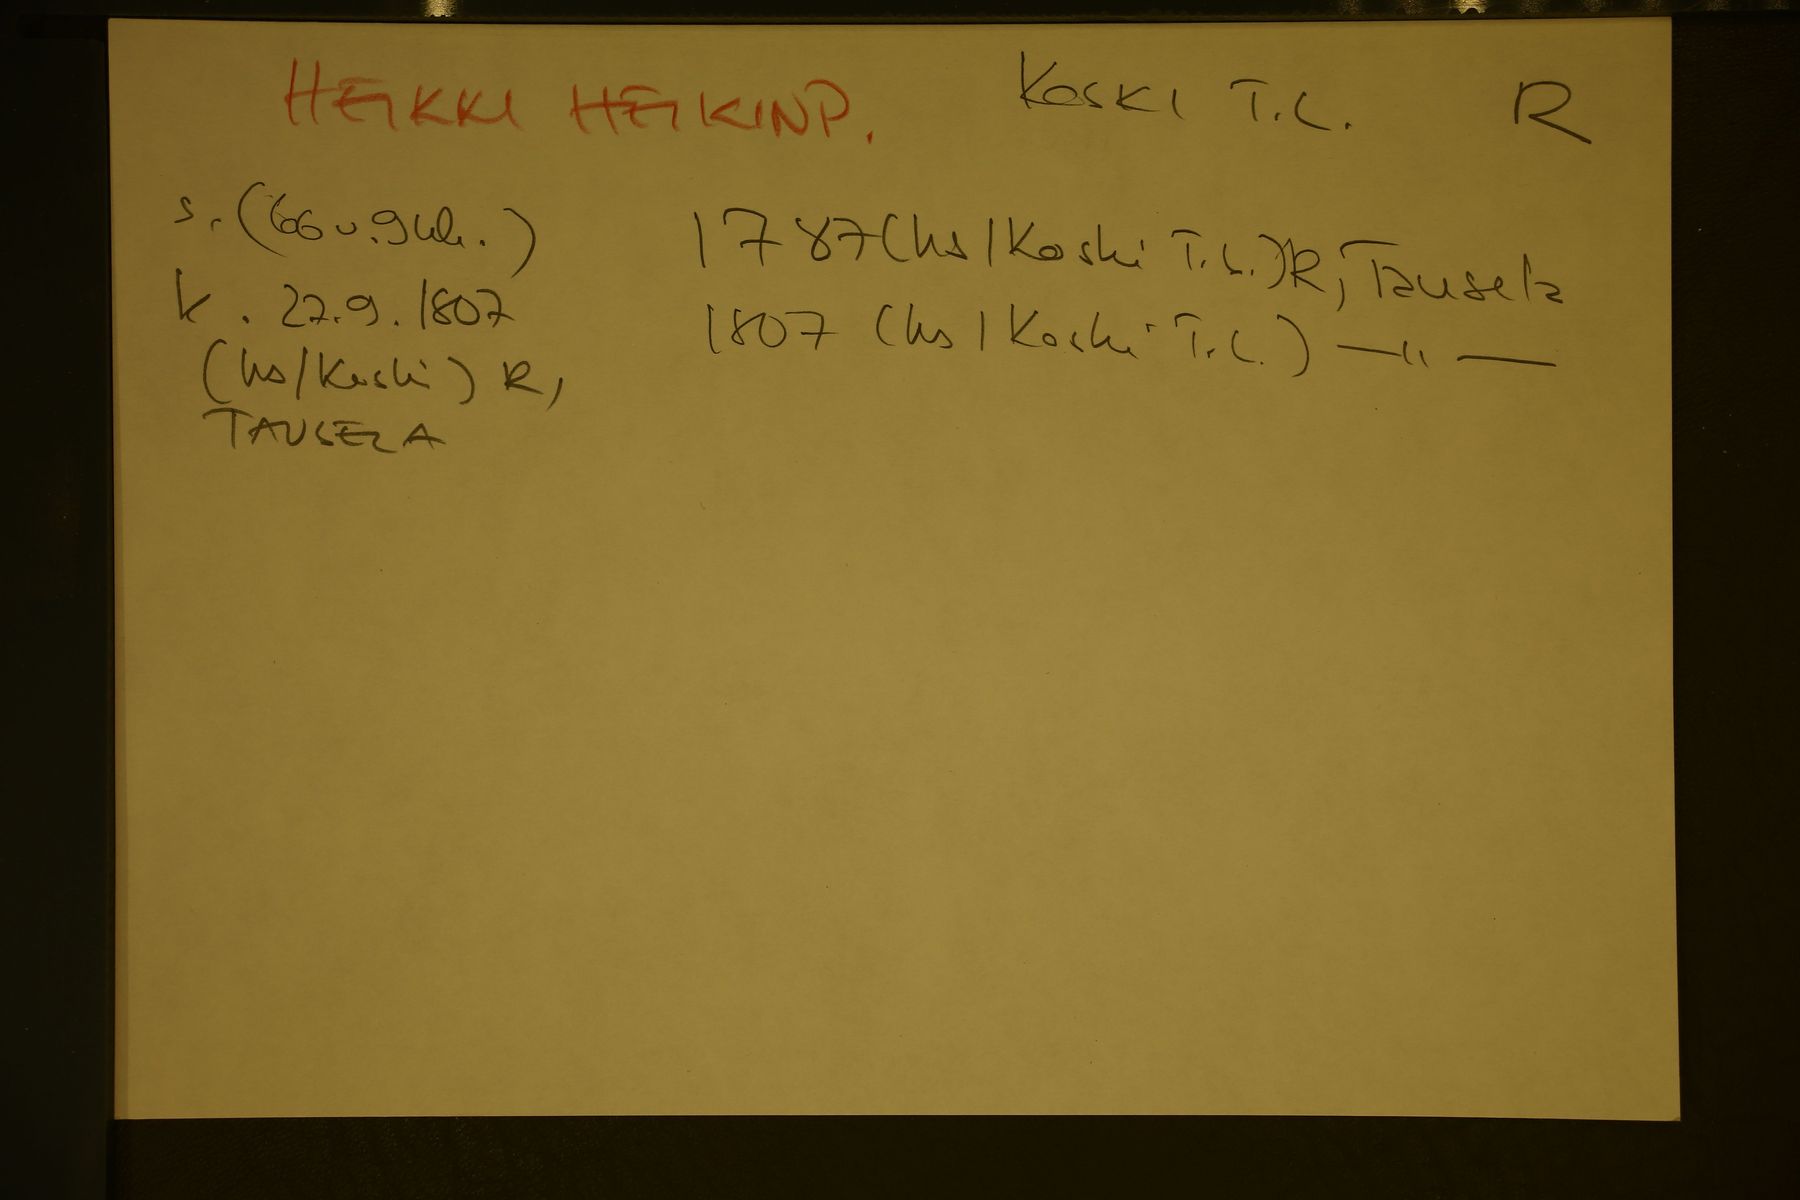 HEIKKI HEIKINP. KOSKI T.L. R
s. (66 v. 9 kk.)
k. 22.9.1807
(hs/Koski) R,
TAUSELA
1787 (hs/Koski T.L.) R, Tausela
1807 (hs/Koski T.L.) —"—